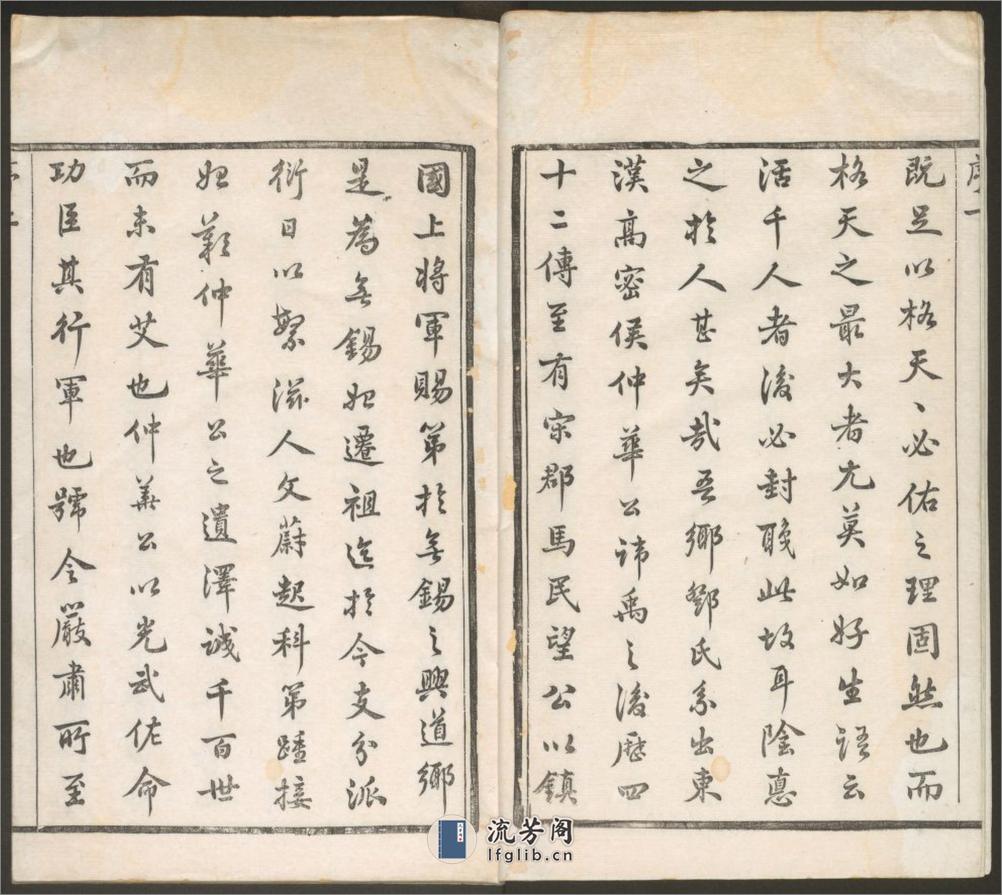 既足以格天、必佑之理固然也而
格天之最大者尤莫如好生語云
活千人者後必封職此故耳陰悳
之於人甚矣哉吾鄉鄧氏系出東
漢高密侯仲華公諱禹之後歷四
十二傳至有宋郡馬民望公以鎮
國上將軍賜第於無錫之興道鄉
是為無錫始遷祖迄於今支分派
衍日以繁滋人文蔚起科第踵接
始歎仲華公之遺澤誠千百世
而未有艾也仲華公以光武佐命
功臣其行軍也號令嚴肅所至
流芳阁
lfglib.cn